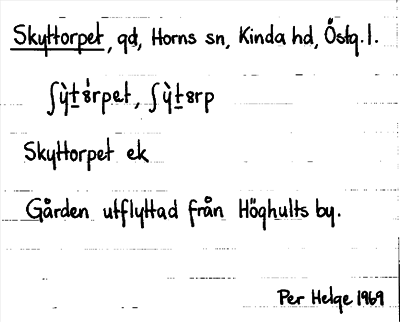 Skyttorpet, gd, Horns sn, Kinda hd, Östg. l.
ʃỳt̲ɜ́rpet, ʃỳt̲ɜrp
Skyttorpet ek
Gården utflyttad från Höghults by.
Per Helge 1969